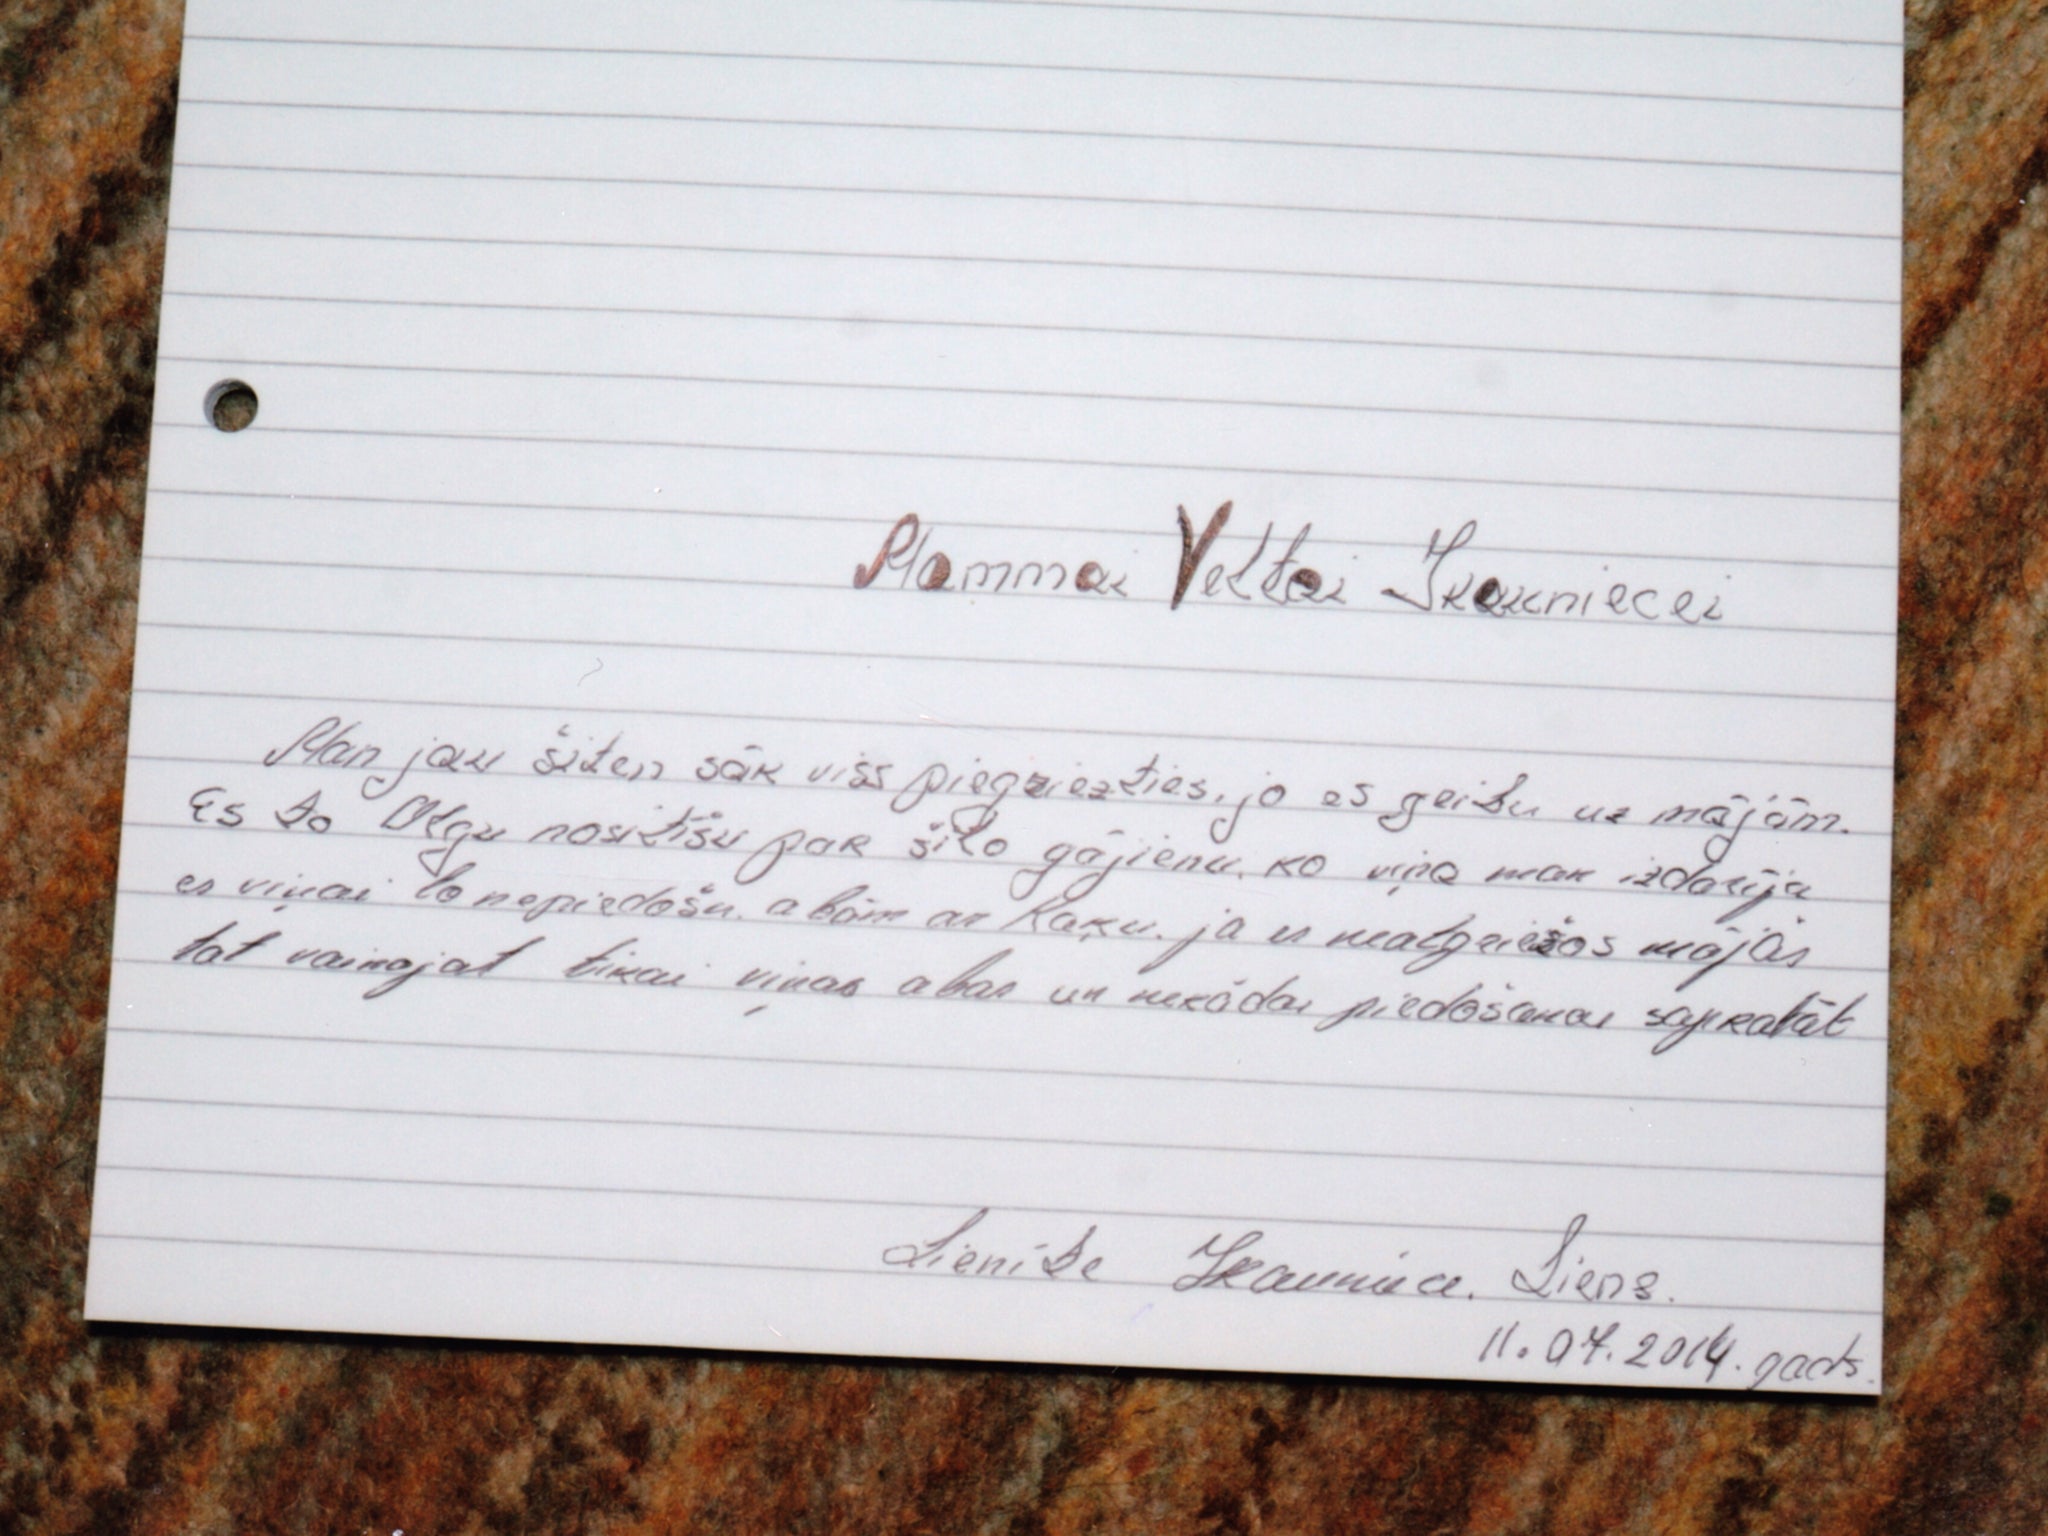 Mammai Veltai Skauniecei
Man jau šiten sāk viss piegriezties, jo es geibu uz mājām.
Es to Olgu nositīšu par šito gājienu, ko viņa man izdarīja
es viņai to nepiedošu. abām ar Kaķu. ja es neatgriežos mājās
tat vainojat tikai viņas abas un nekādas piedošanas sapratāt
Lienīte Skauniece. Liene.
11.07.2014. gads.